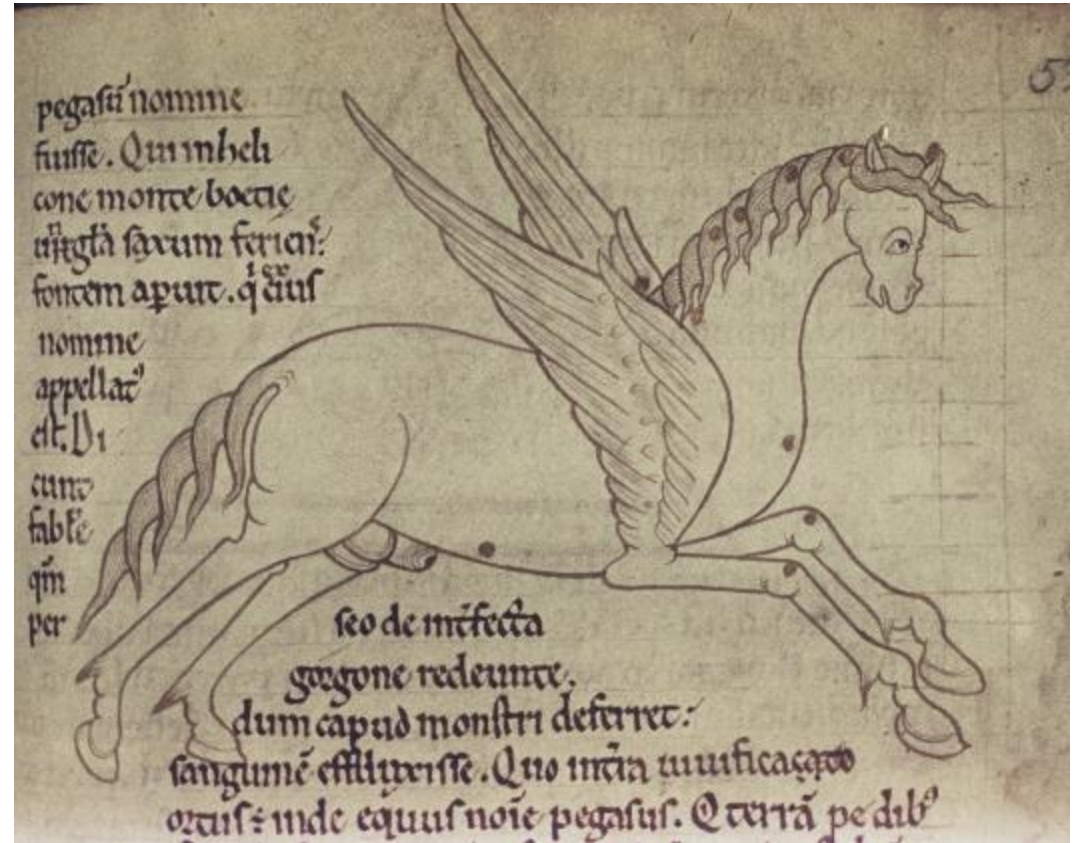 pegasū nomine
fuisse. Qui in heli
cone monte boetię
saxum
fontem aꝑuit.
nomine
appellat᷒
est. Di
cunt
fabłe
qm̄
per
seo de int̄fecta
gorgone redeunte.
dum capud monstri deferret:
sanguinē effluxisse. Quo
ortus: inde equus noīe pegasus. Q terrā pedibꝰ